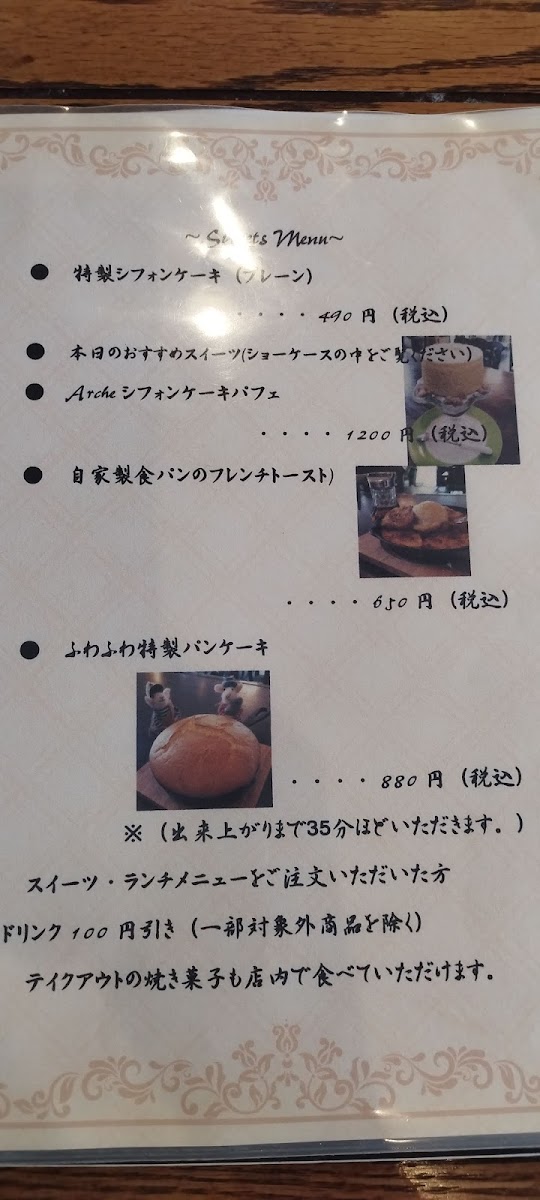 ~ Sweets Menu~
● 特製シフォンケーキ (プレーン)
・・・・ 490 円 (税込)
● 本日のおすすめスイーツ(ショーケースの中をご覧ください)
● Arche シフォンケーキパフェ
・・・・ 1200 円 (税込)
● 自家製食パンのフレンチトースト)
・・・・ 650 円 (税込)
● ふわふわ特製パンケーキ
・・・・ 880 円 (税込)
※ (出来上がりまで35分ほどいただきます。)
スイーツ・ランチメニューをご注文いただいた方
ドリンク 100 円引き (一部対象外商品を除く)
テイクアウトの焼き菓子も店内で食べていただけます。